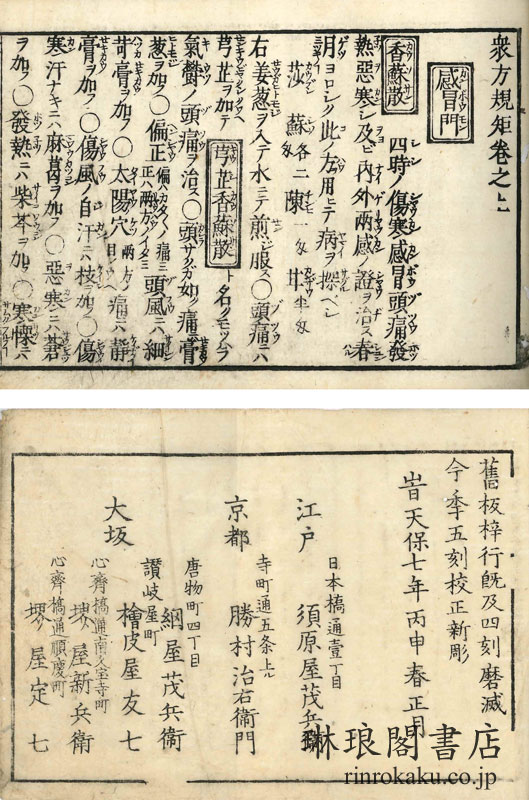 衆方規矩巻之上
感冒門
香蘇散 四時ノ傷寒感冒頭痛発
熱悪寒シ及ヒ内外両感ノ證ヲ治ス春
月ヨロシク此ノ方ヲ用ヒテ病ヲ探ベシ
莎 蘇各二匁 陳一匁 甘半匁
右姜葱ヲ入テ水ニテ煎シ服ス〇頭痛ニハ
芎芷ヲ加テ 芎芷香蘇散 ト名ク
氣欝ノ頭痛ヲ治ス〇頭サクガ如ク痛ニハ膏
葱ヲ加フ〇偏正 頭風ニハ細
芎膏ヲ加フ〇太陽穴 痛ニハ静
膏ヲ加フ〇傷風ノ自汗ニハ枝ヲ加フ〇傷
寒汗ナキニハ麻葛ヲ加フ〇悪寒ニハ蒼
ヲ加フ〇發熱ニハ柴芩ヲ加フ〇寒慄ニハ
舊板梓行既及四刻磨滅
今季五刻校正新彫
旹天保七年丙申春正月
日本橋通壹丁目
江戸 須原屋茂兵衛
寺町通五条上ル
京都 勝村治右衛門
唐物町四丁目
綱屋茂兵衛
讃岐屋町
大坂 檜皮屋友七
心齊橋通南久宝寺町
堺屋新兵衛
心齊橋通順慶町
堺屋定七
琳琅閣書店
rinrokaku.co.jp